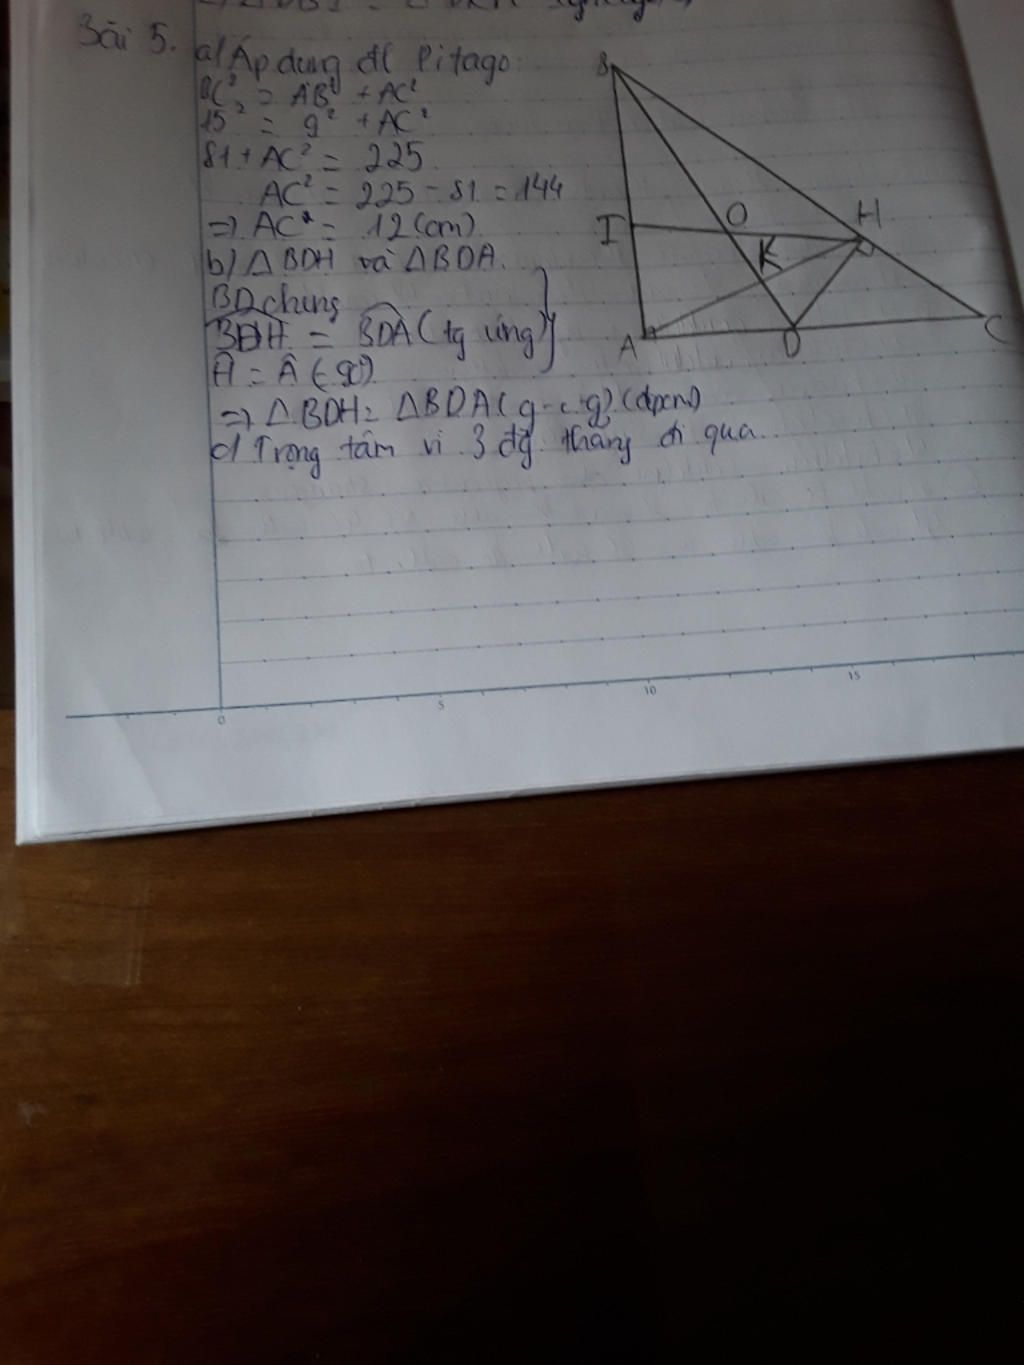 Bài 5. a) Áp dụng đl Pitago:
BC² = AB² + AC²
15² = 9² + AC²
81 + AC² = 225
AC² = 225 - 81 = 144
=> AC = 12 (cm)
b) △BDH và △BDA.
BD chung
BDH = BDA (tg ứng)
Ĥ = Â (= 90)
=> △BDH = △BDA (g-c-g) (đpcm)
c) Trọng tâm vì 3 đg thẳng đi qua
B
I
O
H
K
A
D
C
0
5
10
15